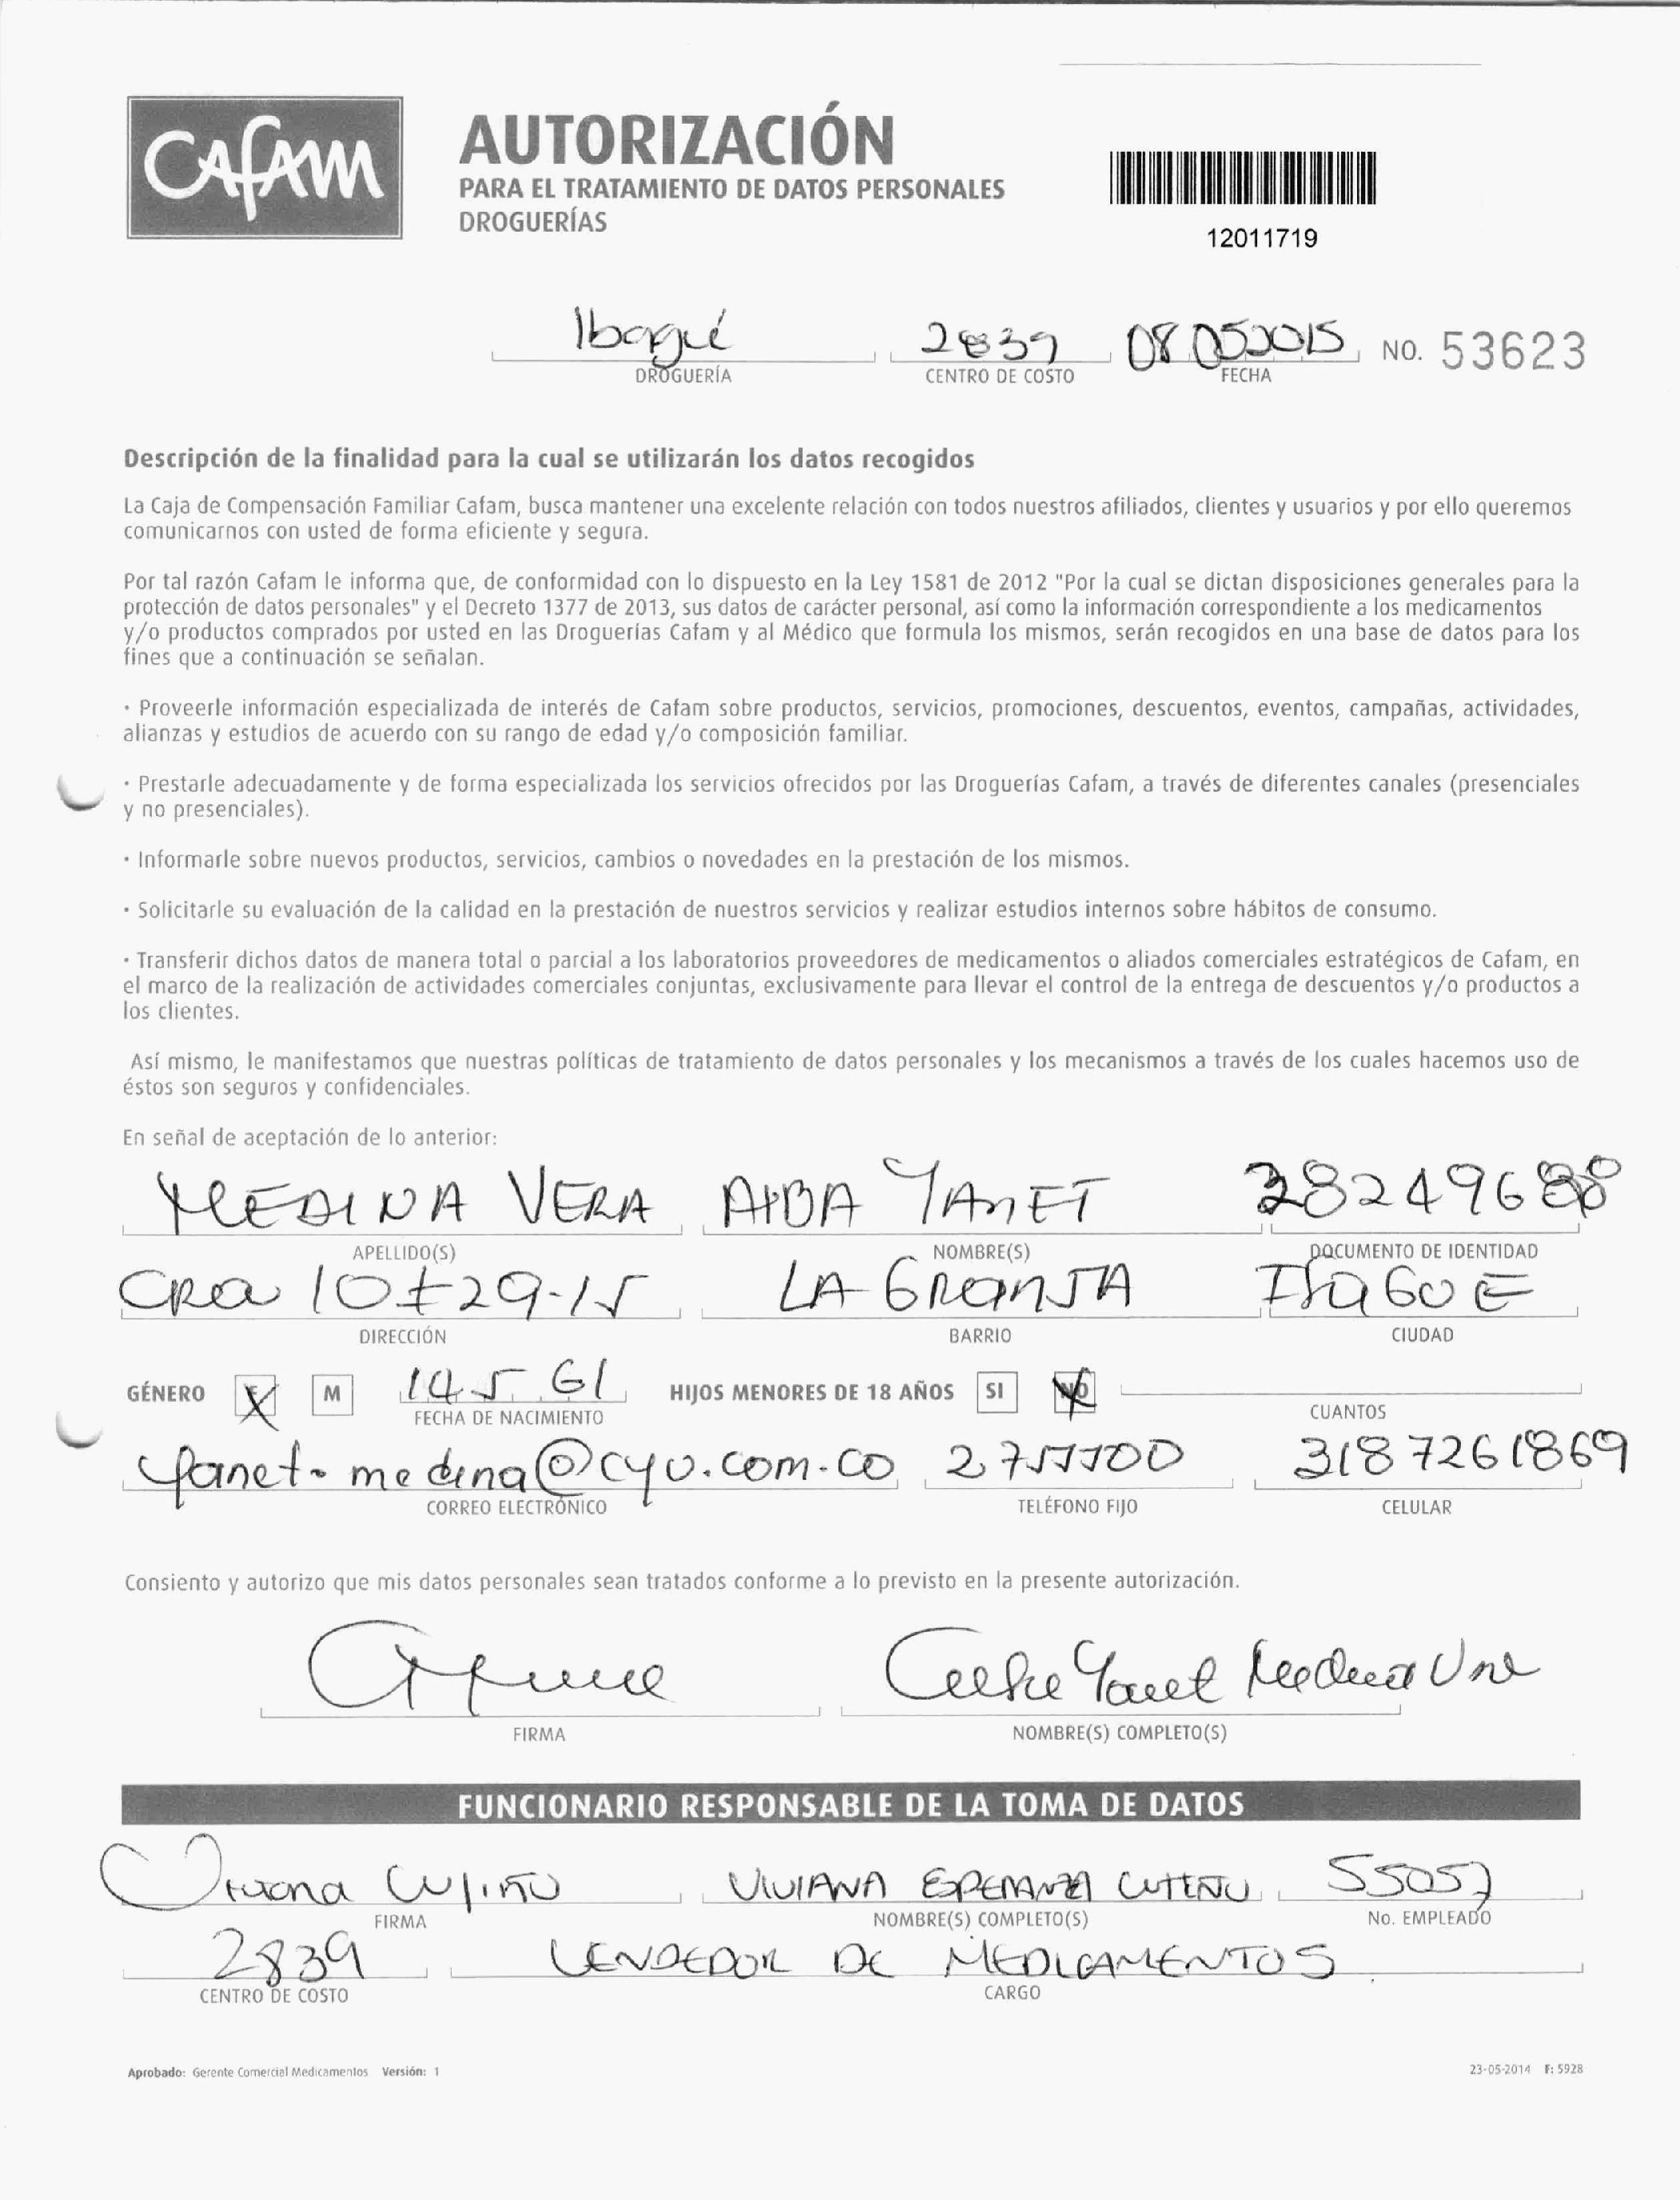 CAFAM
AUTORIZACIÓN
PARA EL TRATAMIENTO DE DATOS PERSONALES
DROGUERÍAS
12011719
Ibagué 2839 08 05 2015 NO. 53623
DROGUERÍA CENTRO DE COSTO FECHA
Descripción de la finalidad para la cual se utilizarán los datos recogidos
La Caja de Compensación Familiar Cafam, busca mantener una excelente relación con todos nuestros afiliados, clientes y usuarios y por ello queremos
comunicarnos con usted de forma eficiente y segura.
Por tal razón Cafam le informa que, de conformidad con lo dispuesto en la Ley 1581 de 2012 "Por la cual se dictan disposiciones generales para la
protección de datos personales" y el Decreto 1377 de 2013, sus datos de carácter personal, así como la información correspondiente a los medicamentos
y/o productos comprados por usted en las Droguerías Cafam y al Médico que formula los mismos, serán recogidos en una base de datos para los
fines que a continuación se señalan.
· Proveerle información especializada de interés de Cafam sobre productos, servicios, promociones, descuentos, eventos, campañas, actividades,
alianzas y estudios de acuerdo con su rango de edad y/o composición familiar.
· Prestarle adecuadamente y de forma especializada los servicios ofrecidos por las Droguerías Cafam, a través de diferentes canales (presenciales
y no presenciales).
· Informarle sobre nuevos productos, servicios, cambios o novedades en la prestación de los mismos.
· Solicitarle su evaluación de la calidad en la prestación de nuestros servicios y realizar estudios internos sobre hábitos de consumo.
· Transferir dichos datos de manera total o parcial a los laboratorios proveedores de medicamentos o aliados comerciales estratégicos de Cafam, en
el marco de la realización de actividades comerciales conjuntas, exclusivamente para llevar el control de la entrega de descuentos y/o productos a
los clientes.
Así mismo, le manifestamos que nuestras políticas de tratamiento de datos personales y los mecanismos a través de los cuales hacemos uso de
éstos son seguros y confidenciales.
En señal de aceptación de lo anterior:
MEDINA VERA AIDA YANET
APELLIDO(S) NOMBRE(S) DOCUMENTO DE IDENTIDAD
CRa 10 # 29-15 LA GRANJA IBAGUE
DIRECCIÓN BARRIO CIUDAD
GÉNERO M 14 5 61 HIJOS MENORES DE 18 AÑOS SI NO
FECHA DE NACIMIENTO CUANTOS
yanet-medina@cyu.com.co 3187261869
CORREO ELECTRÓNICO TELÉFONO FIJO CELULAR
Consiento y autorizo que mis datos personales sean tratados conforme a lo previsto en la presente autorización.
Yanet Medina
FIRMA NOMBRE(S) COMPLETO(S)
FUNCIONARIO RESPONSABLE DE LA TOMA DE DATOS
VIVIANA 55057
FIRMA NOMBRE(S) COMPLETO(S) No. EMPLEADO
2839 VENDEDOR DE MEDICAMENTOS
CENTRO DE COSTO CARGO
Aprobado: Gerente Comercial Medicamentos Versión: 1 23-05-2014 F: 5928